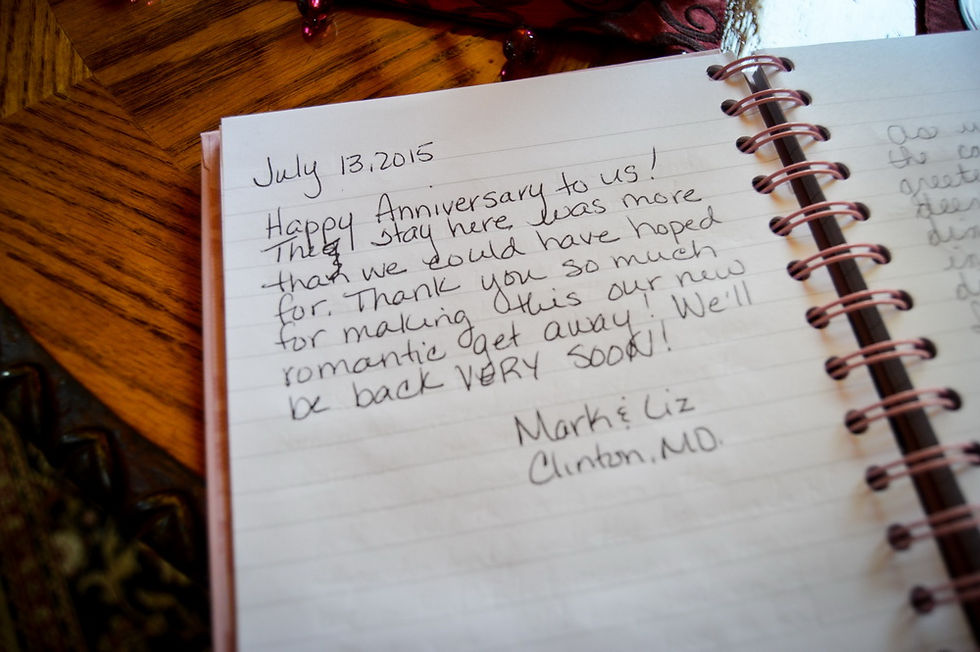 July 13, 2015
Happy Anniversary to us!
The stay here was more
than we could have hoped
for. Thank you so much
for making this our new
romantic get away! We'll
be back VERY SOON!
Mark & Liz
Clinton, MD.
as
the co
greete